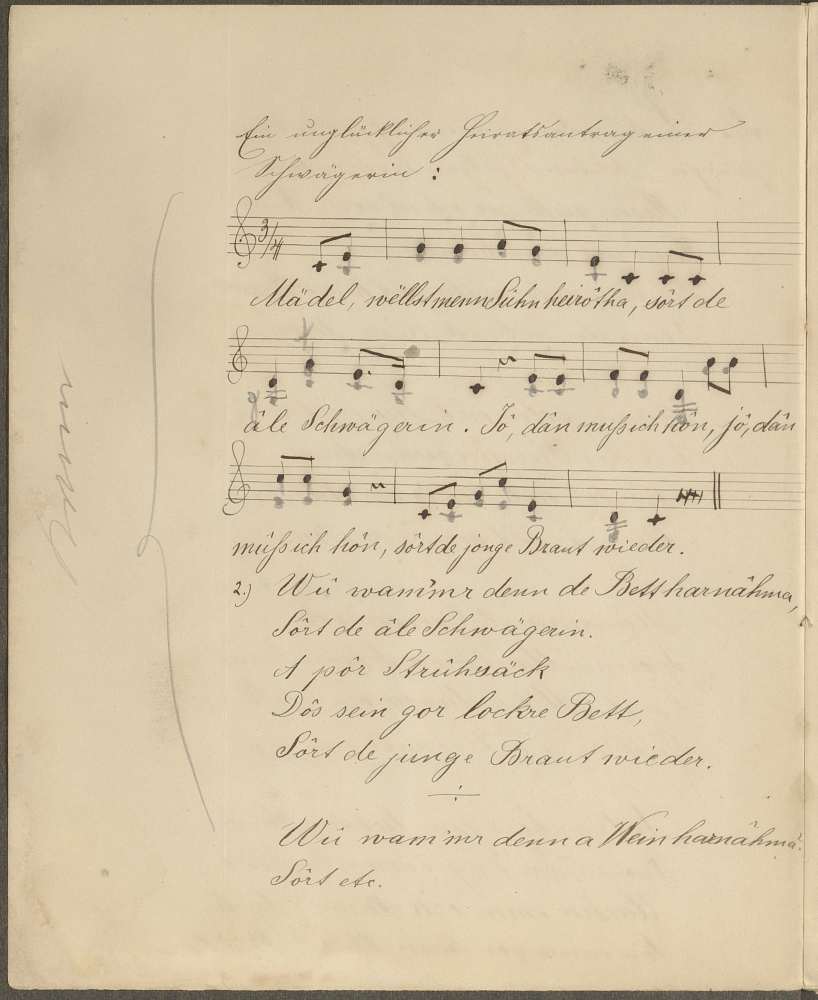 Ein unglücklicher Heiratsantrag einer
Schwägerin :
3/4
Mädel, wëllst menn Sühn heirôtha, sôrt de
âle Schwägerin. Jô, dân muß ich hôn, jô, dân
müß ich hôn, sôrt de jonge Braut wieder.
2.) Wü wam'mr denn de Bett harnâhma,
Sôrt de âle Schwägerin.
A pôr Strühsäck
Dôs sein gor lockre Bett,
Sôrt de junge Braut wieder.
Wü wam'mr denn a Wein harnâhma.
Sôrt etc.